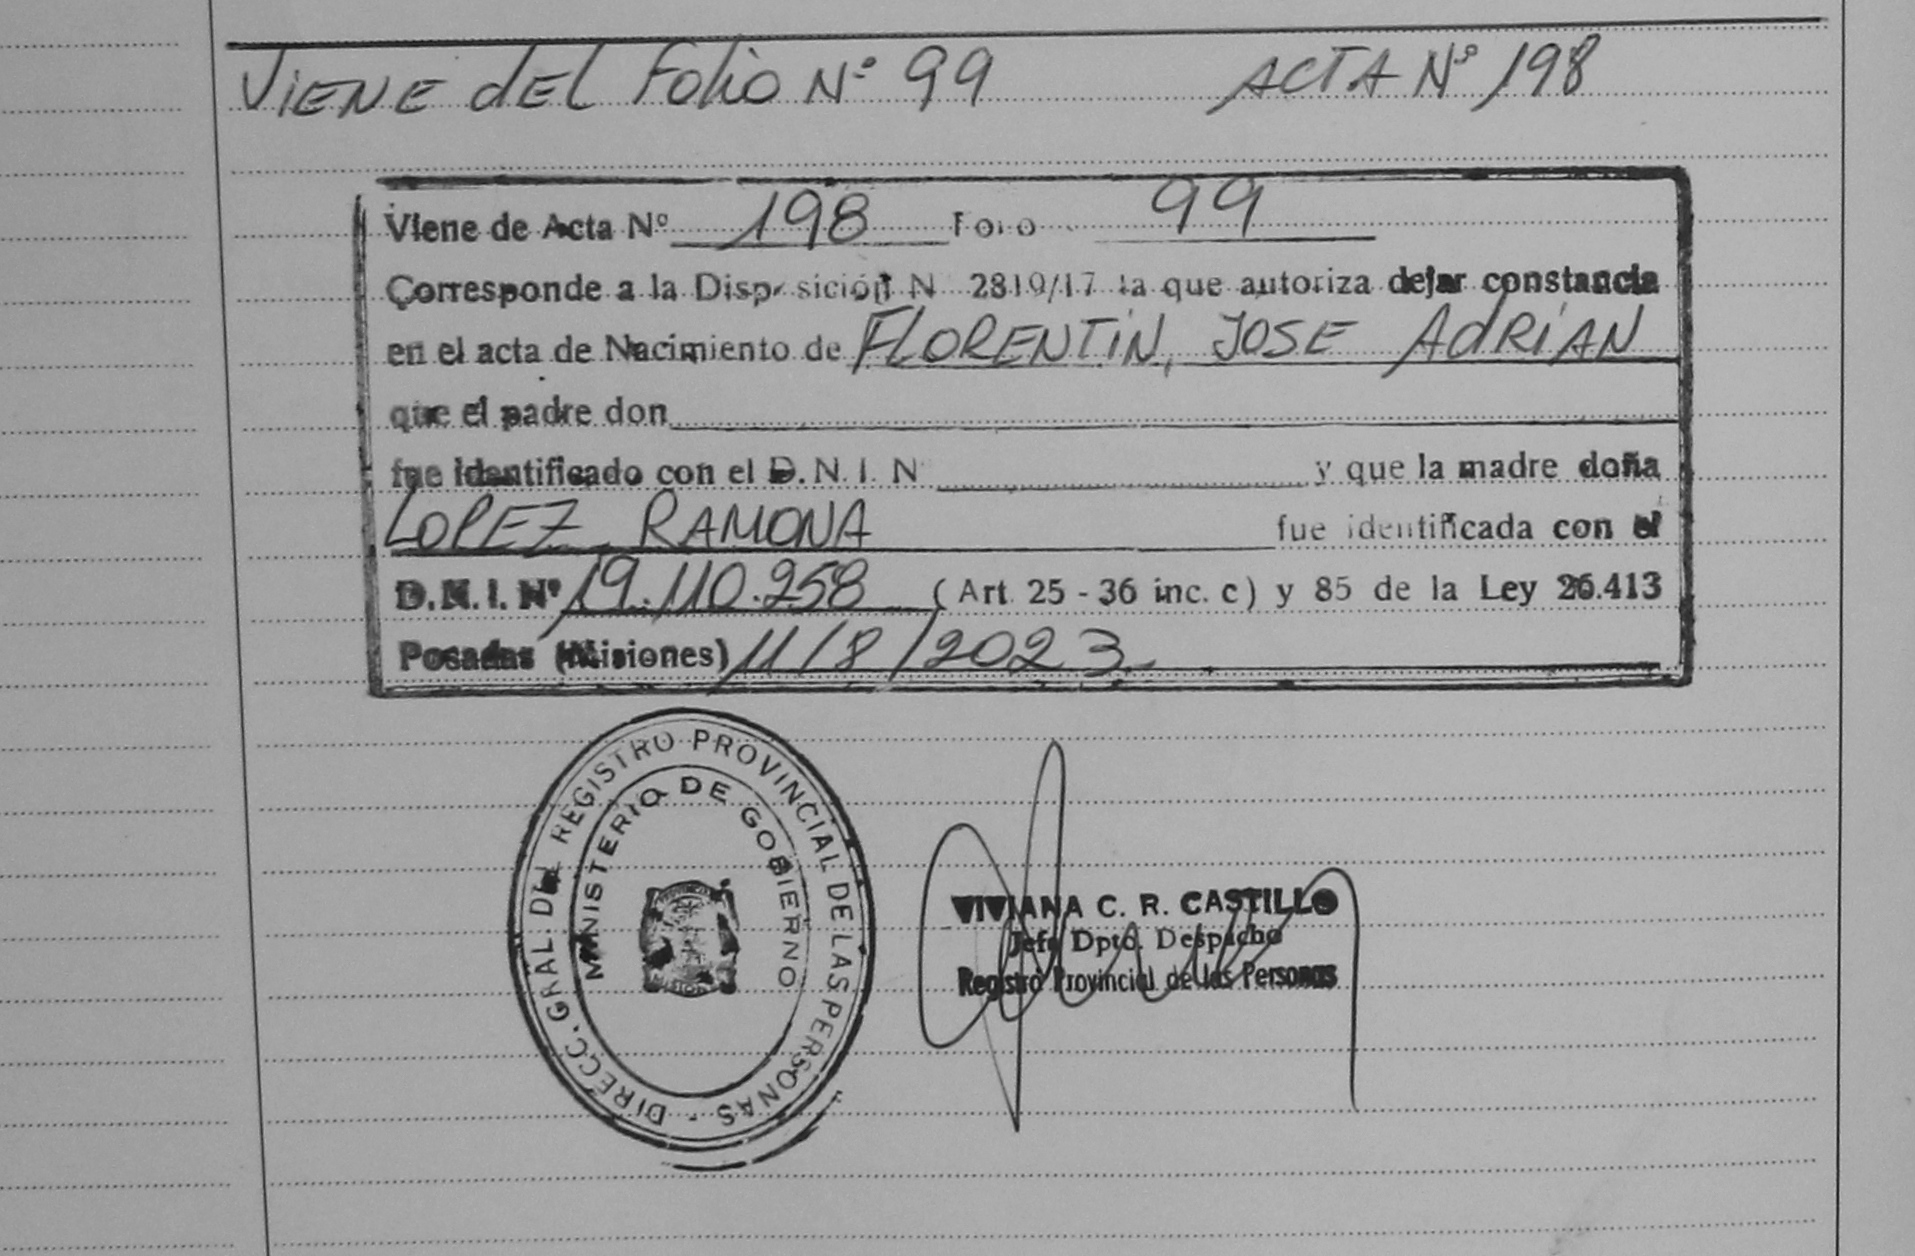 VIENE dEL Folio Nº 99 ACTA Nº 198
Viene de Acta Nº 198 Folio 99
Corresponde a la Disposición N 2819/17 la que autoriza dejar constancia
en el acta de Nacimiento de FLORENTIN, JOSE AdRIAN
que el padre don
fue identificado con el D.N.I. N y que la madre doña
LOPEZ RAMONA fue identificada con el
D.N.I. Nº 19.110.258 (Art. 25 - 36 inc. c) y 85 de la Ley 26.413
Posadas (Misiones) 11/8/2023
DIRECC. GRAL. DEL REGISTRO PROVINCIAL DE LAS PERSONAS -
MINISTERIO DE GOBIERNO
VIVIANA C. R. CASTILLO
Jefe Dpto. Despacho
Registro Provincial de las Personas